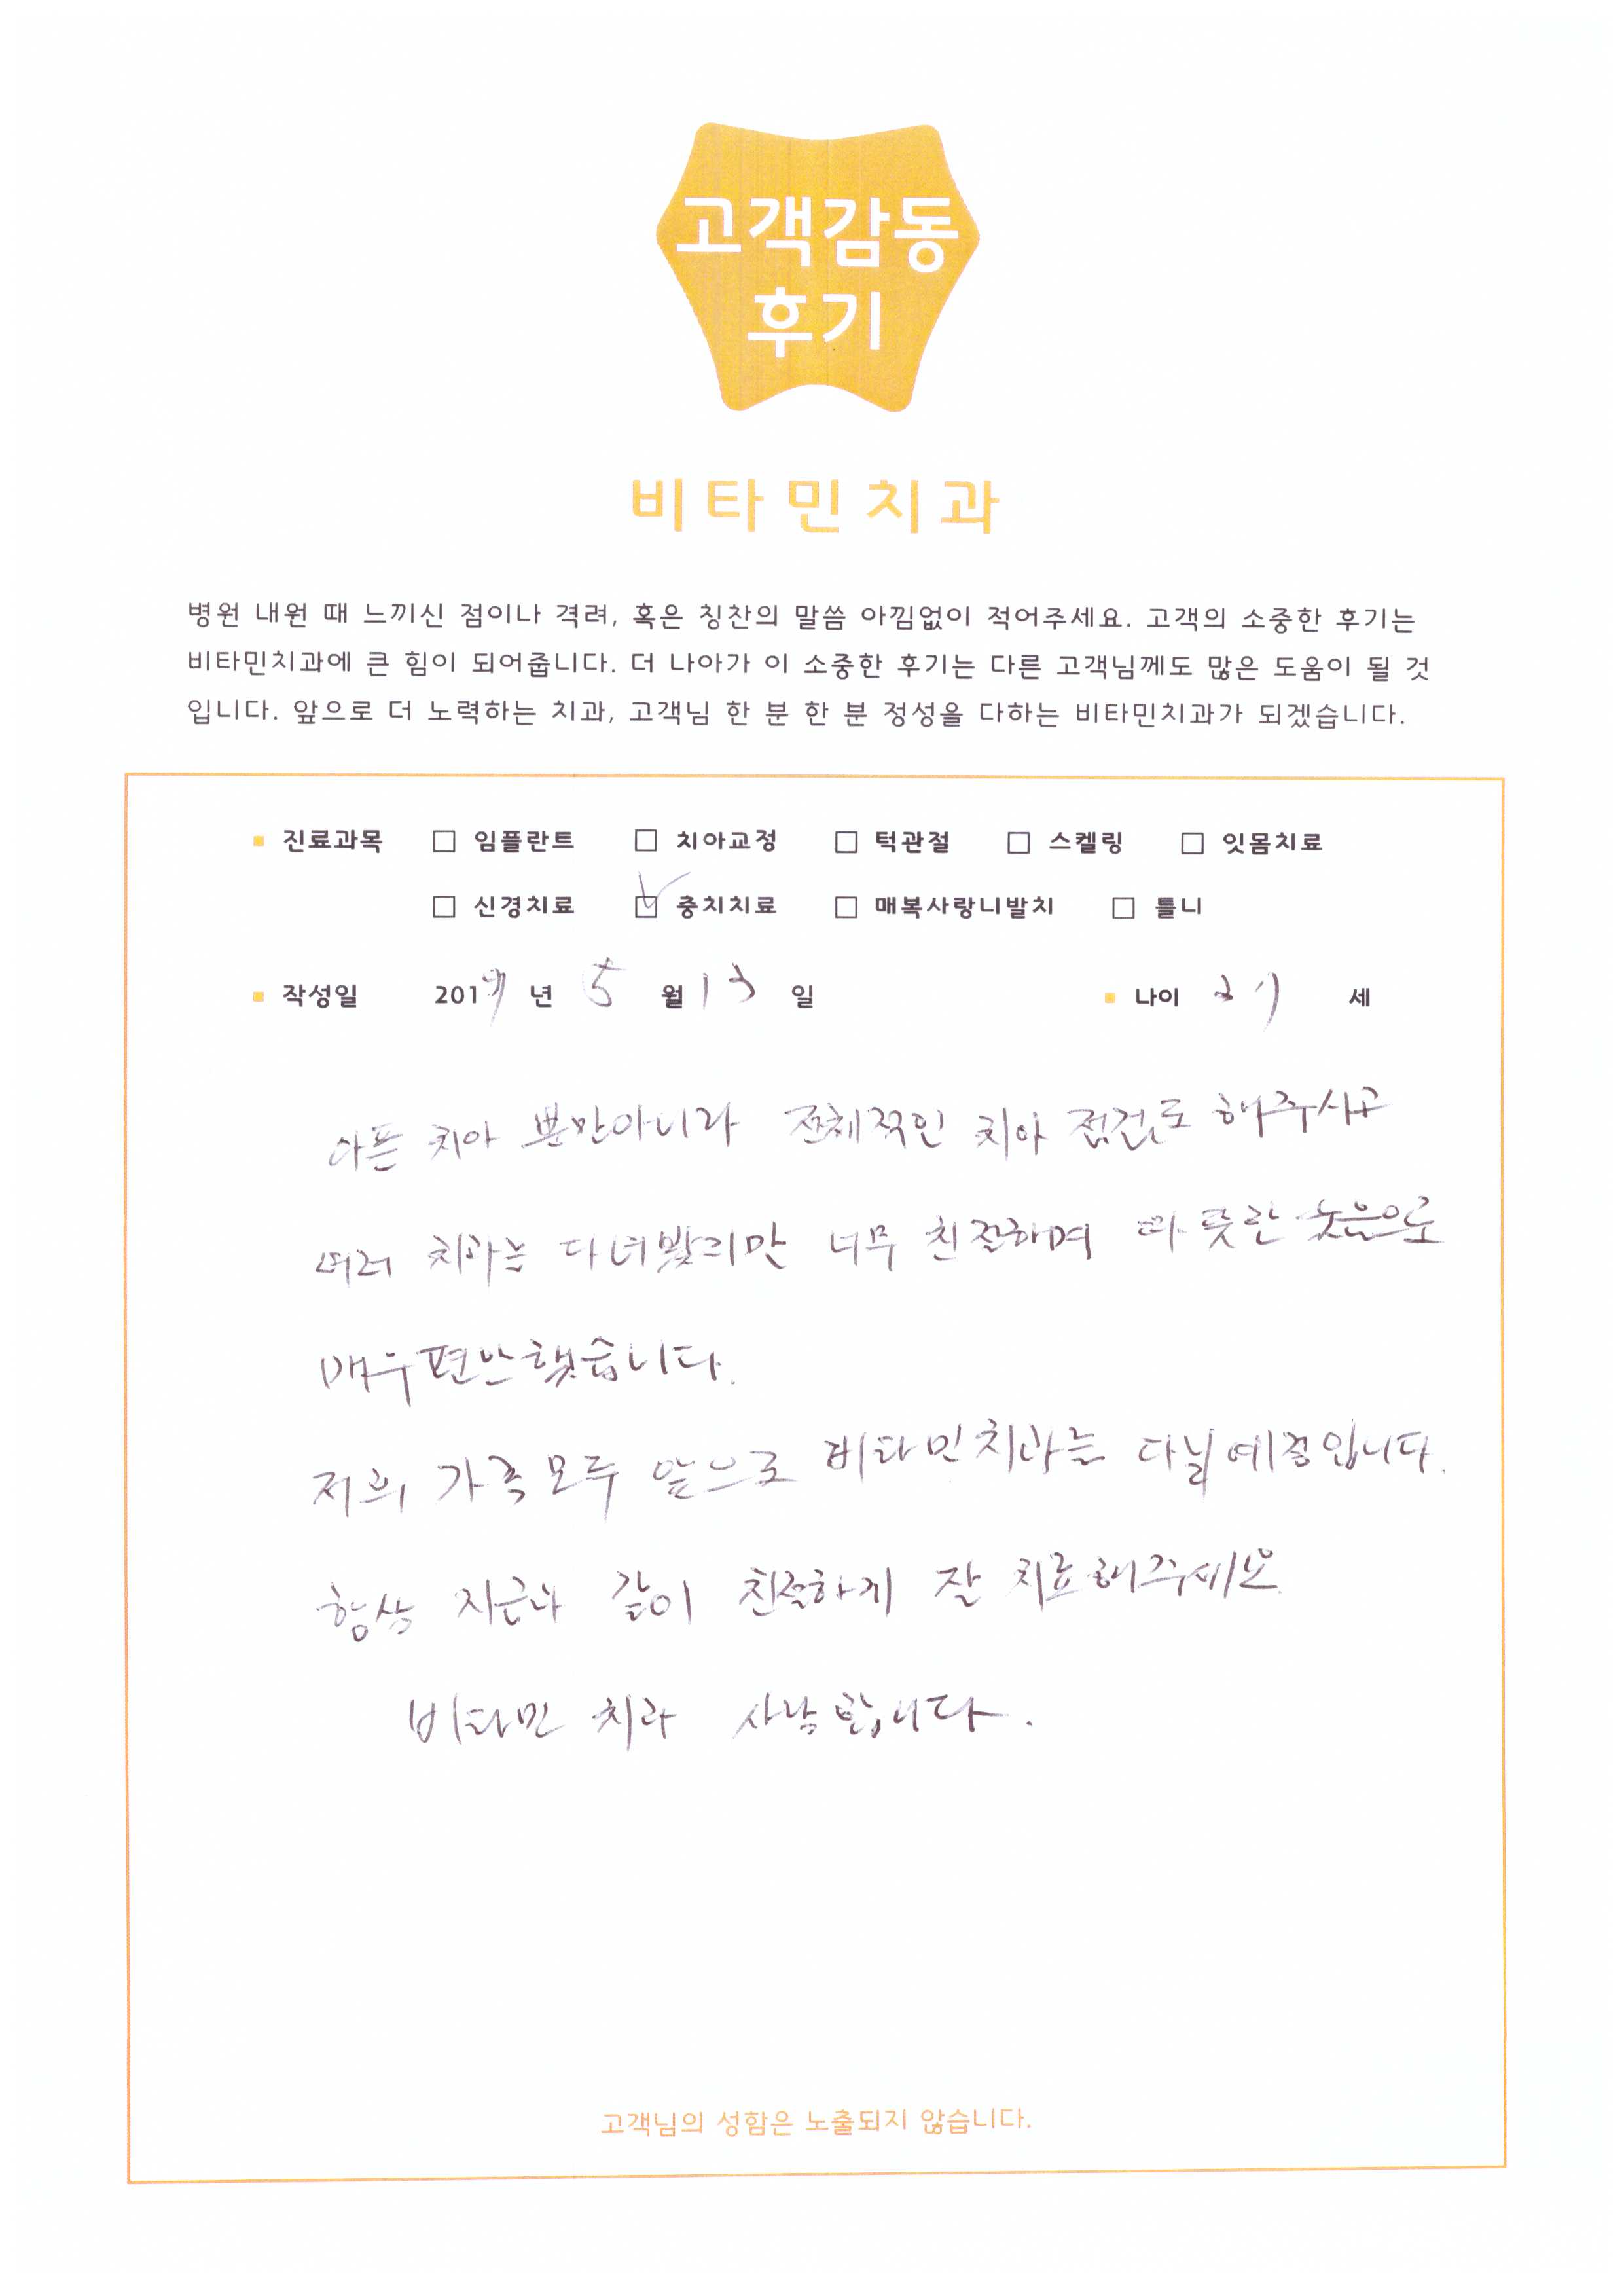 고객감동
후기
비타민치과
병원 내원 때 느끼신 점이나 격려, 혹은 칭찬의 말씀 아낌없이 적어주세요. 고객의 소중한 후기는
비타민치과에 큰 힘이 되어줍니다. 더 나아가 이 소중한 후기는 다른 고객님께도 많은 도움이 될 것
입니다. 앞으로 더 노력하는 치과, 고객님 한 분 한 분 정성을 다하는 비타민치과가 되겠습니다.
진료과목 임플란트 치아교정 턱관절 스켈링 잇몸치료
신경치료 충치치료 매복사랑니발치 틀니
작성일 201 년 5 월 13 일 나이 27 세
아픈 치아 뿐만아니라 전체적인 치아 점검도 해주시고
여러 치과는 다녀봤지만 너무 친절하며 따뜻한
매우 편안했습니다.
저희 가족 모두 앞으로 비타민치과는 다닐예정입니다.
항상 지금과 같이 친절하게 잘 치료해주세요
비타민 치과 사랑합니다.
고객님의 성함은 노출되지 않습니다.